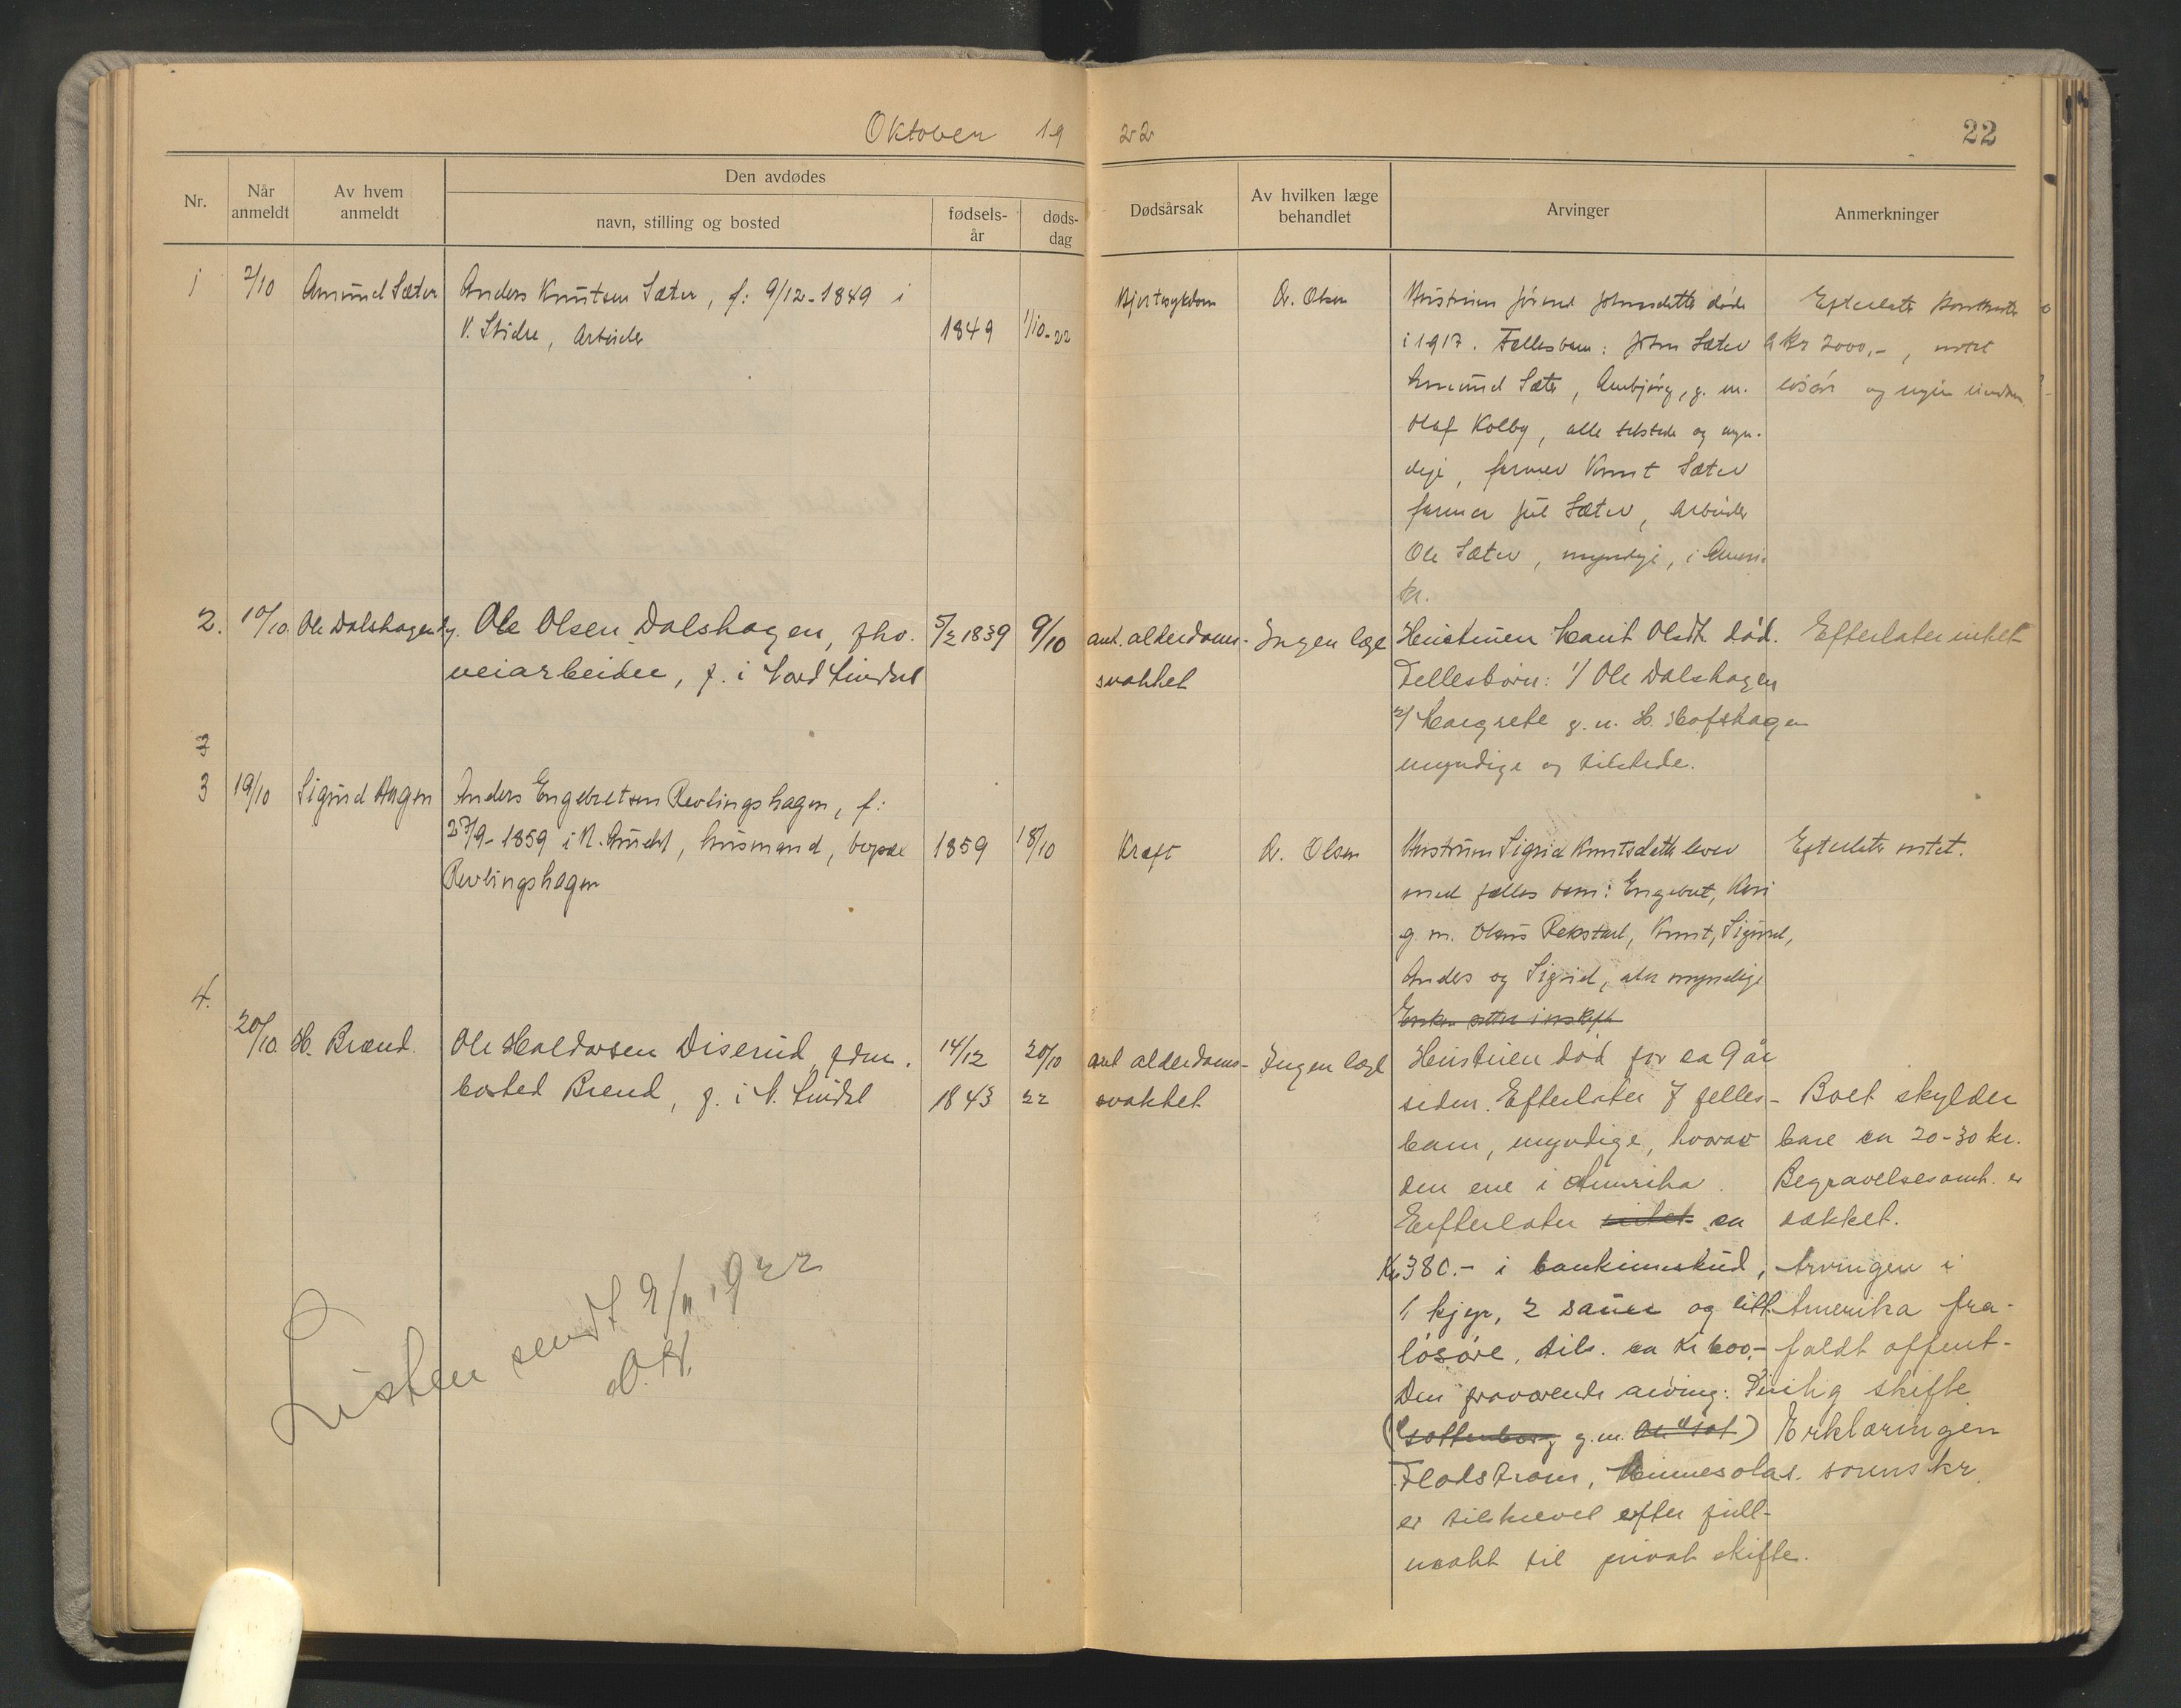 Oktober 19 22
22
Nr.
Når anmeldt
Av hvem anmeldt
Den avdødes
navn, stilling og bosted
fødsels-år
døds-dag
Dødsårsak
Av hvilken læge behandlet
Arvinger
Anmerkninger
1 2/10 Amund Sæter
Anders Knutsen Sæter, f: 9/12-1849 i
V. Slidre, Arbeider
1849 1/10-22
Hjertesykdom
Dr. Olsen
Hustruen Jörand Johnsdatter döde
i 1917. Fellesbarn: John Sæter
Amund Sæter, Ambjørg, g. m.
Olaf Kolby, alle tilstede og myn-
dige, farmer Knut Sæter
farmer Jul Sæter, Arbeider
Ole Sæter, myndige, i Ameri-
ka.
Efterlater kontanter
a kr 2000,-, intet
lösöre og ingen eiendom
2. 10/10 Ole Dalshagen
Ole Olsen Dalshagen, fhv.
veiarbeider, f. i Nord Aurdal
5/2 1839 9/10
ant. alderdoms-
svakhet
Ingen læge
Hustruen Marit Olsdt. död.
Fellesbörn: 1/ Ole Dalshagen
2/ Margrete g. m. H. Hofshagen
myndige og tilstede.
Efterlater intet
3
3 19/10 Sigurd Hagen
Anders Engebretsen Revlingshagen, f:
27/9-1859 i N. Aurdal, husmand, bopæl
Revlingshagen
1859 18/10
Kræft
Dr. Olsen
Hustruen Sigrid Knutsdatter lever
med fælles barn: Engebret, Kari
g. m. Olaus Rekstad, Knut, Sigurd,
Anders og Sigrid, alle myndige
Enken sitter i uskifte
Efterlater intet.
4.
20/10. H. Brænd.
Ole Haldorsen Diserud, gdm.
bosted Brend, f. i N. Aurdal
14/12
1843
20/10
22
ant alderdoms-
svakhet
Ingen læge
Hustruen död for ca 9 år
siden. Efterlater 7 felles-
barn, myndige, hvorav
den ene i Amerika.
Eefterlater intet ca
Kr 380.- i bankinnskud,
1 kjyr, 2 sauer og litt
lösöre, tils. ca kr 600,-
Den fraværende arving:
g. m.
Flodstrom, Minnesota
er tilskrevet efter full-
makt til privat skifte.
Boet skylder
bare ca 20-30 kr.
Begravelsesomk. er
dækket.
Arvingen i
Amerika fra-
faldt offent-
lig skifte
Erklæringen
s. sorenskr.
Listen sendt 9/11 1922
O.H.